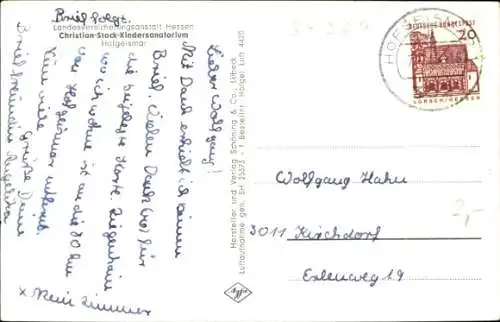 Brief folgt.
Landesversicherungsanstalt Hessen
Christian-Stock-Kindersanatorium
Hofgeismar
Lieber Wolfgang!
Mit Dank erhielt ich deinen
Brief. Vielen Dank (xo) für
die beigelegte Karte. Ziegenhain
wo ich wohne ist an die 80 km
von Hofgeismar entfernt.
Nun viele
Grüße Deine
Brieffreundin Angelika
x Mein Zimmer
Hersteller und Verlag Schöning & Co., Lübeck
Luftaufnahme gen. SH 25573 - 1 Besteller Hofgei. Luft 4420
Agfa
HOFGEISMAR
DEUTSCHE BUNDESPOST
20
LORSCH/HESSEN
Wolfgang Hahn
3011 Kirchdorf
Erlenweg 19
2,-